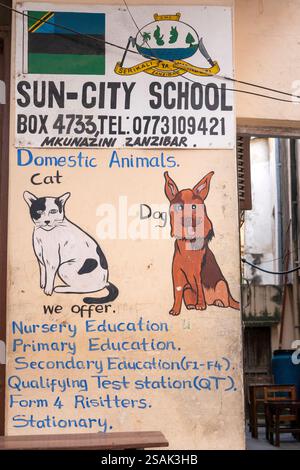 SERIKALI YA
SUN-CITY SCHOOL
BOX 4733,TEL: 0773109421
MKUNAZINI ZANZIBAR.
Domestic Animals.
Cat
Dog
we offer.
Nursery Education
Primary Education.
Secondary Education(F1-F4).
Qualifying Test station(QT).
Form 4 Risitters.
Stationary.
alamy
Image ID: 2SAK3HB
www.alamy.com